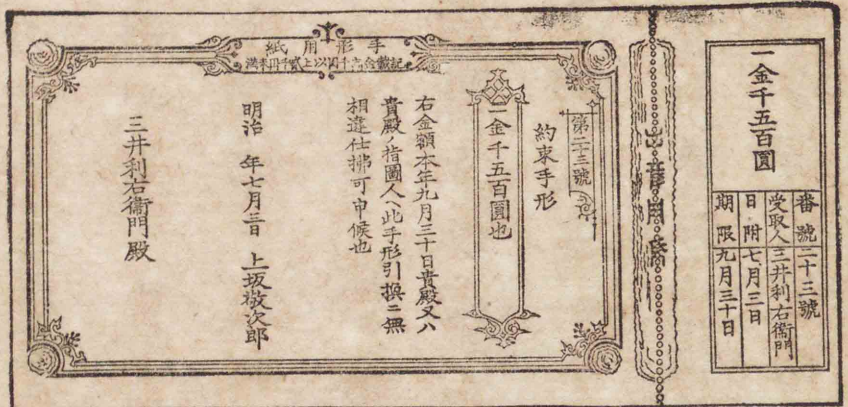 一金千五百圓
番號 二十三號
受取人 三井利右衞門
日附 七月三日
期限 九月三十日
手形用紙
第二十三號
約束手形
一金千五百圓也
右金額本年九月三十日貴殿又ハ
貴殿ノ指圖人ヘ此手形引換ニ無
相違仕拂可申候也
明治 年七月三日 上坂 次郎
三井利右衞門殿